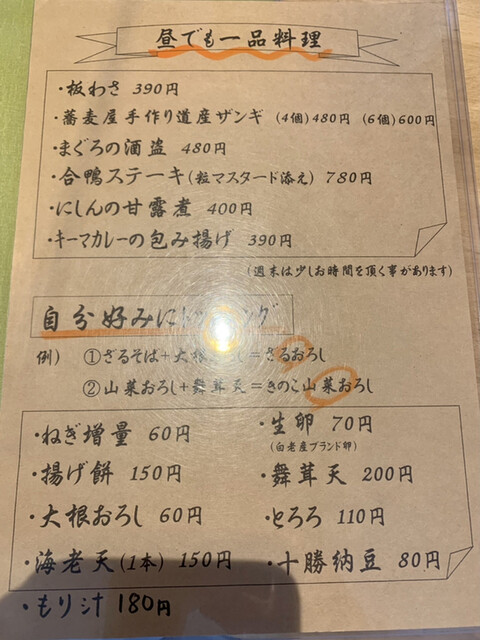 昼でも一品料理
・板わさ 390円
・蕎麦屋手作り道産ザンギ (4個)480円 (6個)600円
・まぐろの酒盗 480円
・合鴨ステーキ(粒マスタード添え) 780円
・にしんの甘露煮 400円
・キーマカレーの包み揚げ 390円
(週末は少しお時間を頂く事があります)
自分好みにトッピング
例) ①ざるそば+大根おろし=ざるおろし
②山菜おろし+舞茸天=きのこ山菜おろし
・ねぎ増量 60円
・揚げ餅 150円
・大根おろし 60円
・海老天(1本) 150円
・もり汁 180円
・生卵 70円
(白老産ブランド卵)
・舞茸天 200円
・とろろ 110円
・十勝納豆 80円